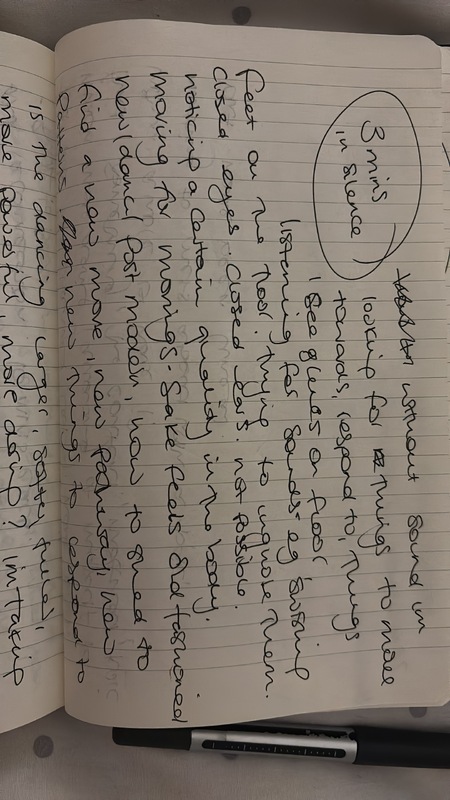 3 mins
in silence
without sound im
looking for things to move
towards, respond to, things
I see on floor
listening for sounds - eg swishing
feet on the floor. trying to ignore them.
closed eyes. closed ears. not possible.
noticing a certain quality in the body.
moving for movings sake feels old fashioned
new/dance/post modern, how to to
find a new move, new pathway, new
patterns new things to respond to
is the dancing larger, softer, fuller,
more powerful, more daring? im taking